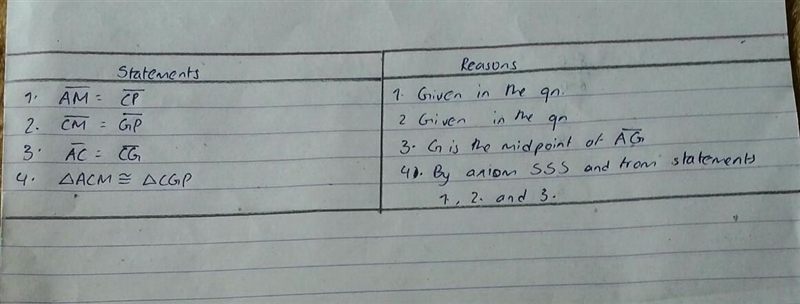 Statements Reasons
1. AM = CP 1. Given in the qn.
2. CM = GP 2 Given in the qn
3. AC = CG 3. G is the midpoint of AG
4. △ACM ≅ △CGP 4). By axiom SSS and from statements
1, 2. and 3.